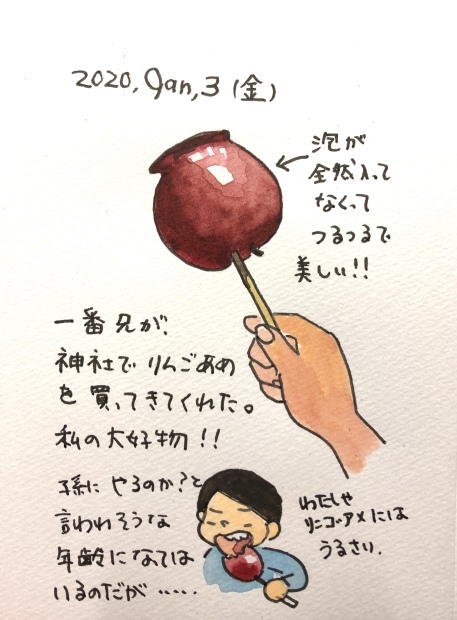 2020, Jan, 3 (金)
泡が
全然入って
なくって
つるつるで
美しい!!
一番兄が、
神社でりんごあめ
を買ってきてくれた。
私の大好物!!
孫にやるのか?と
言われそうな
年齢になては
いるのだが……
わたしゃ
リンゴアメには
うるさい.